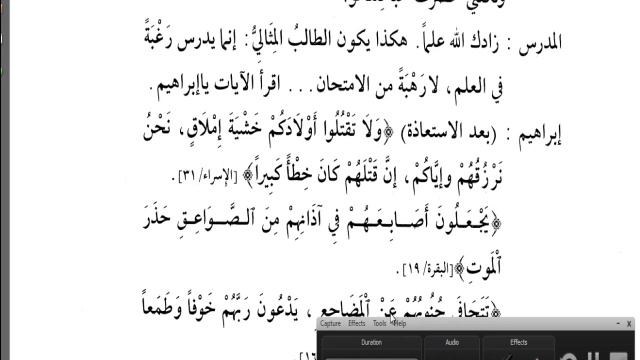 المدرس : زادك الله علماً. هكذا يكون الطالبُ المِثاليُّ: إنما يدرس رَغْبَةً
في العلم، لا رَهْبَةً من الامتحان . . . اقرأ الآيات يا إبراهيم.
إبراهيم : (بعد الاستعاذة) ﴿وَلَا تَقْتُلُوا أَوْلَادَكُمْ خَشْيَةَ إِمْلَاقٍ، نَحْنُ
نَرْزُقُهُمْ وإيَّاكُمْ، إنَّ قَتْلَهُمْ كَانَ خِطْأً كَبِيراً﴾ [الإسراء/ ٣١].
﴿يَجْعَلُونَ أَصَابِعَهُمْ فِي آذَانِهِمْ مِنَ الصَّوَاعِقِ حَذَرَ
الْمَوتِ﴾[البقرة/ ١٩].
﴿تَتَجَافَى جُنُوبُهُمْ عَنْ الْمَضَاجِعِ ، يَدْعُونَ رَبَّهُمْ خَوْفاً وَطَمَعاً
Capture Effects Tools Help
Duration Audio Effects